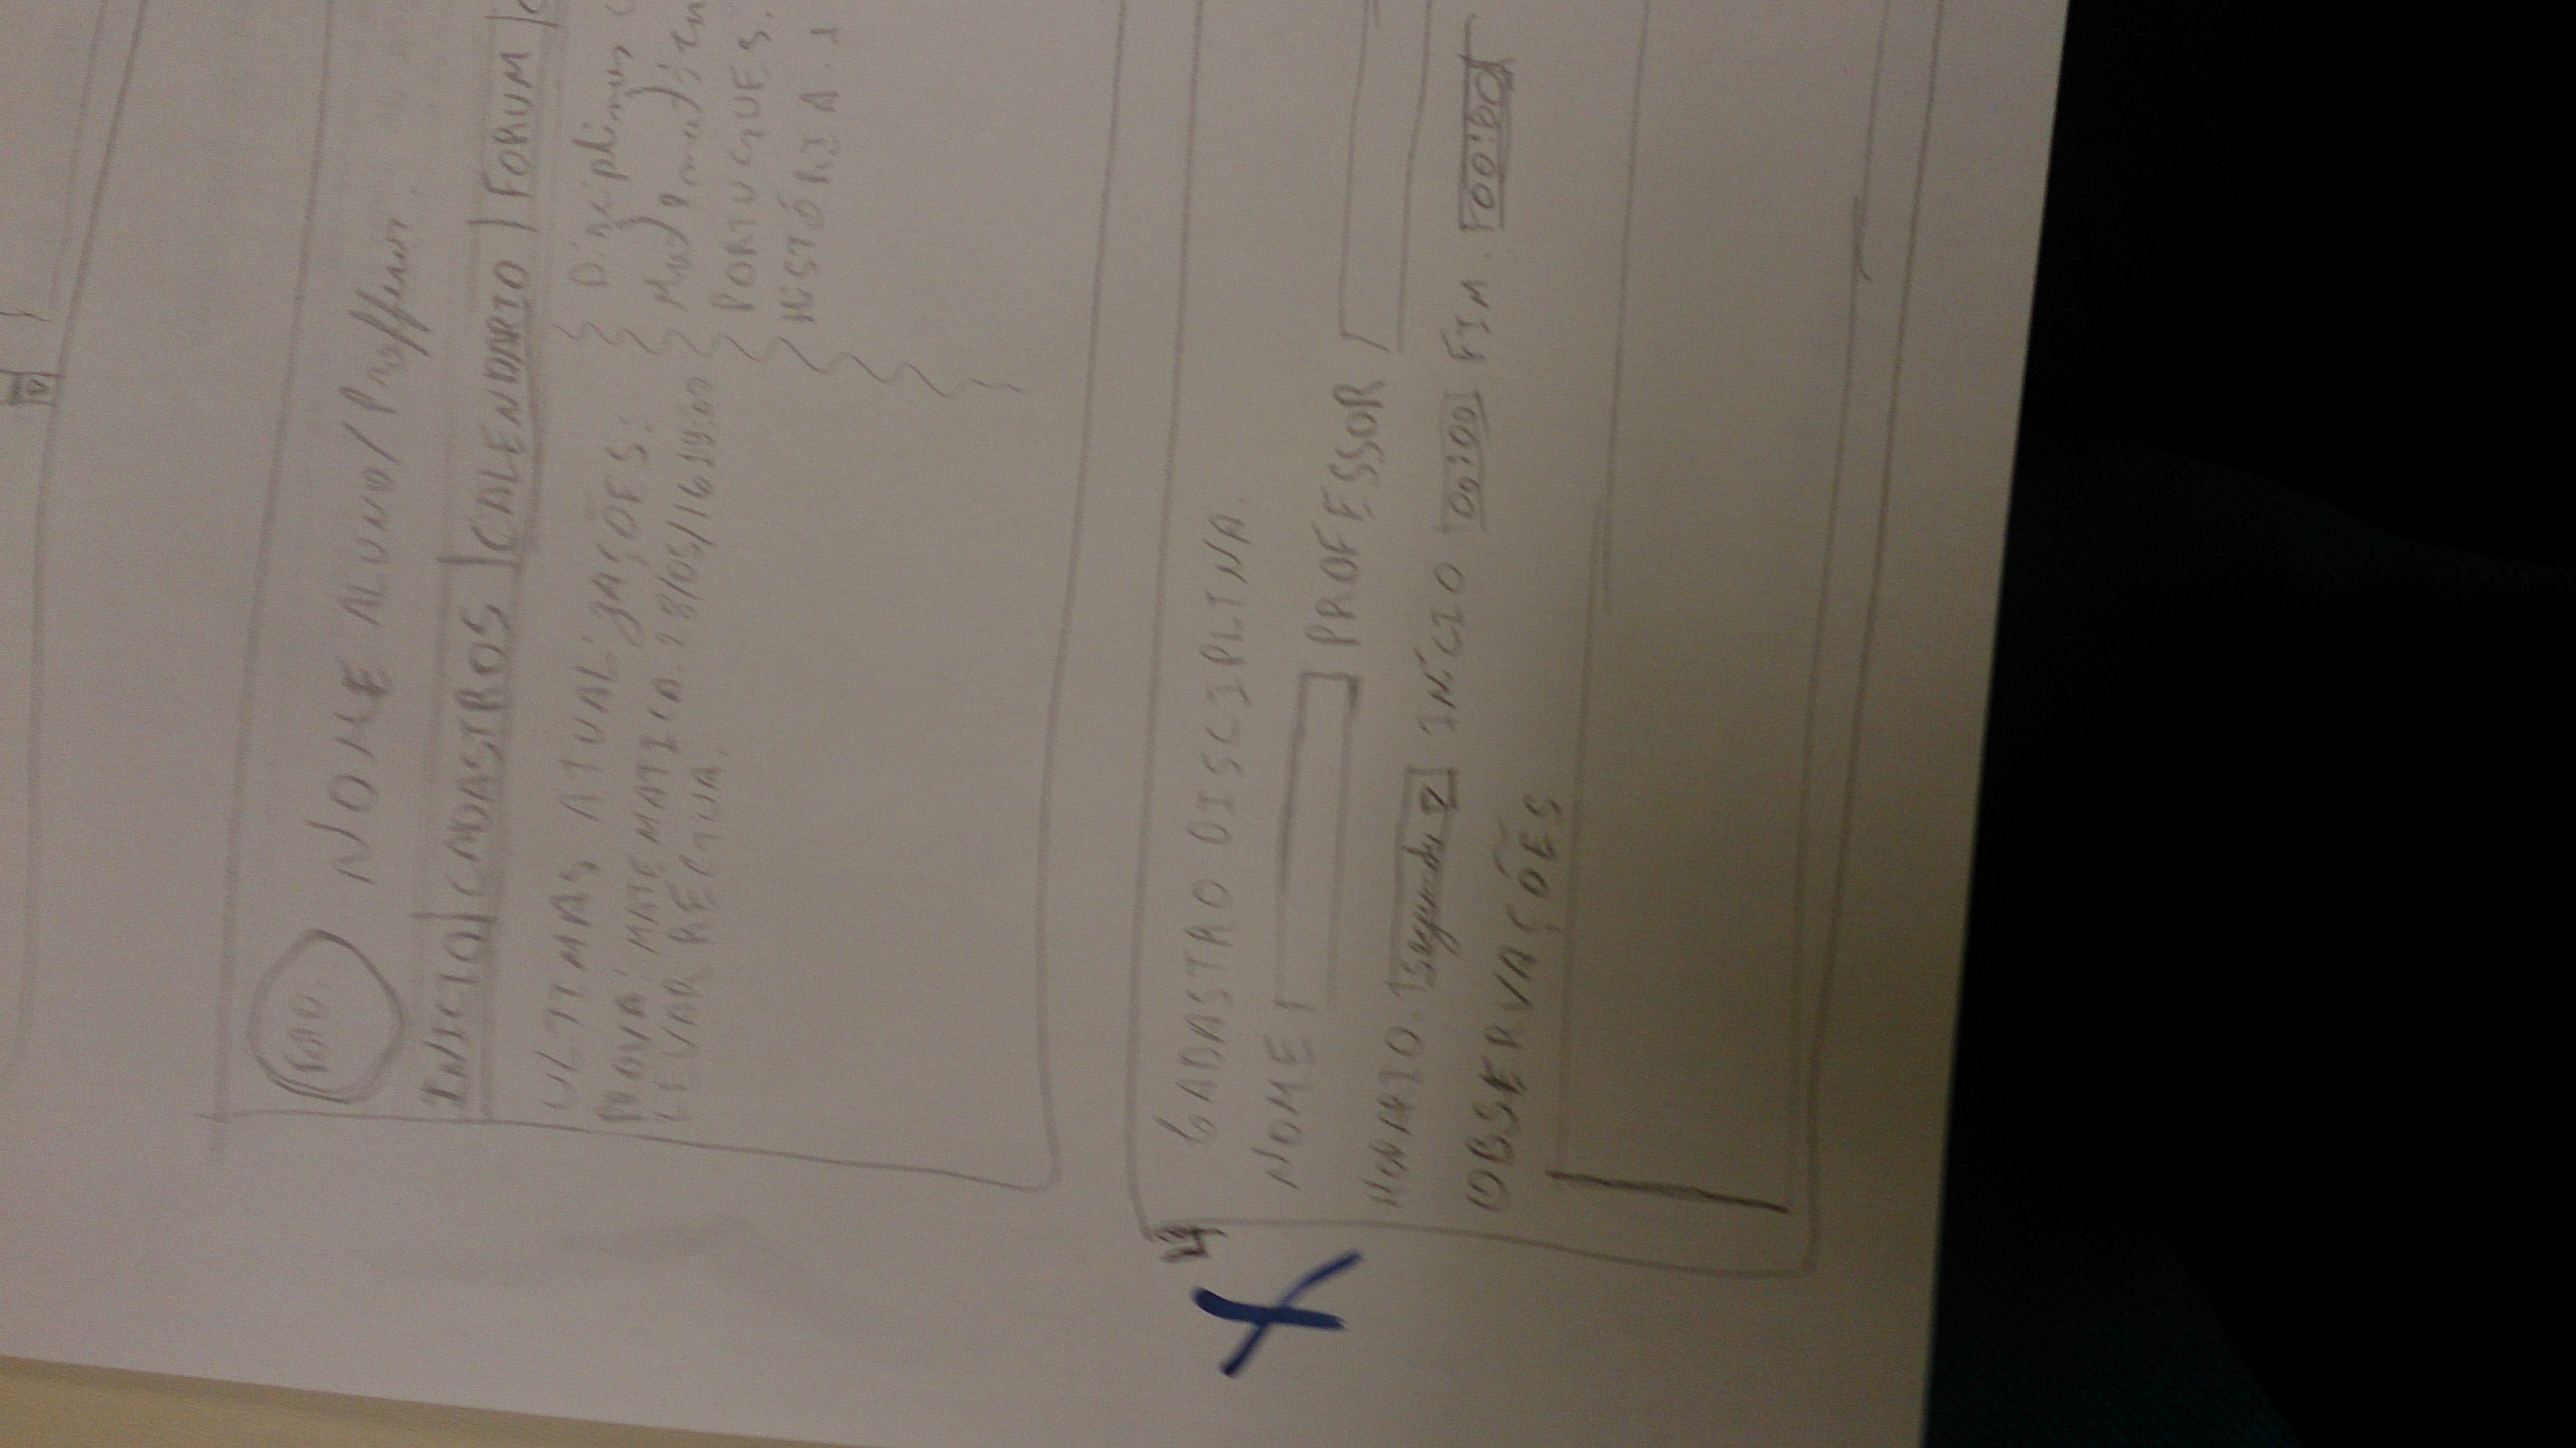 FOTO.
NOME ALUNO/Proffessor
INICIO | CADASTROS | CALENDARIO | FORUM |
ULTIMAS ATUALIZAÇÕES:
PROVA: MATEMATICA. 28/05/16 19:00
LEVAR REGUA.
Disciplinas
Matematica
PORTUGUES.
HISTÓRIA. 1
4
CADASTRO DISCIPLINA.
NOME PROFESSOR
HORARIO. Segunda INÍCIO 00:00 FIM. 00:00
OBSERVAÇÕES